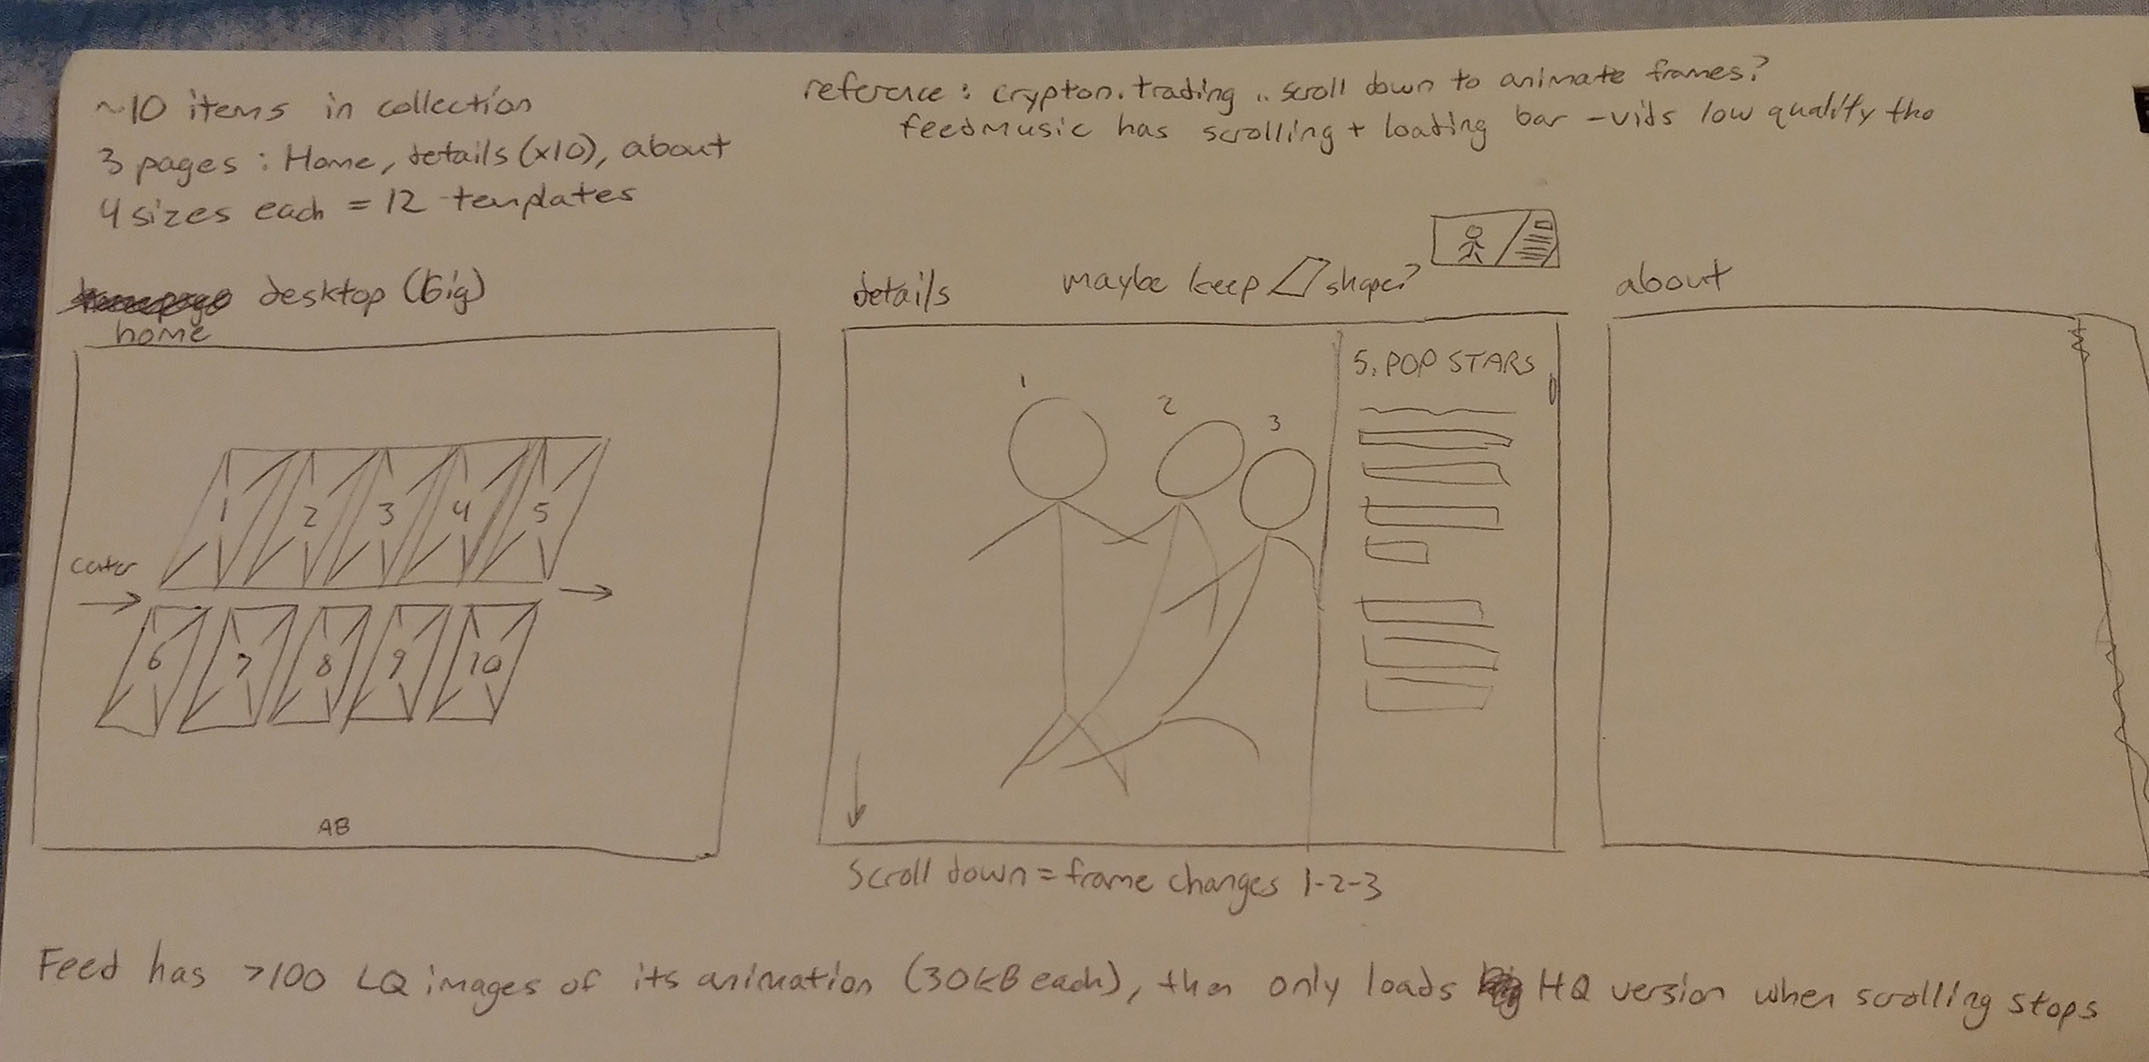 ~10 items in collection
3 pages : Home, details (x10), about
4 sizes each = 12 templates
reference : crypton.trading .. scroll down to animate frames?
feedmusic has scrolling + loading bar - vids low quality tho
desktop (big)
home
1 2 3 4 5
center
6 7 8 9 10
AB
details
maybe keep shape?
1
2
3
5. POP STARS
Scroll down = frame changes 1-2-3
about
Feed has >100 LQ images of its animation (30kB each), then only loads HQ version when scrolling stops